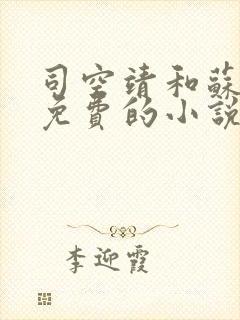 司空靖和蘇
免費的小說
李迎霞